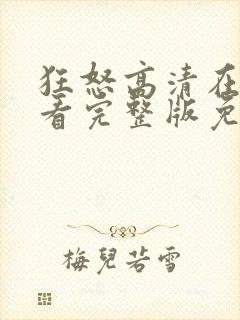 狂怒高清在
看完整版免
梅兒若雪